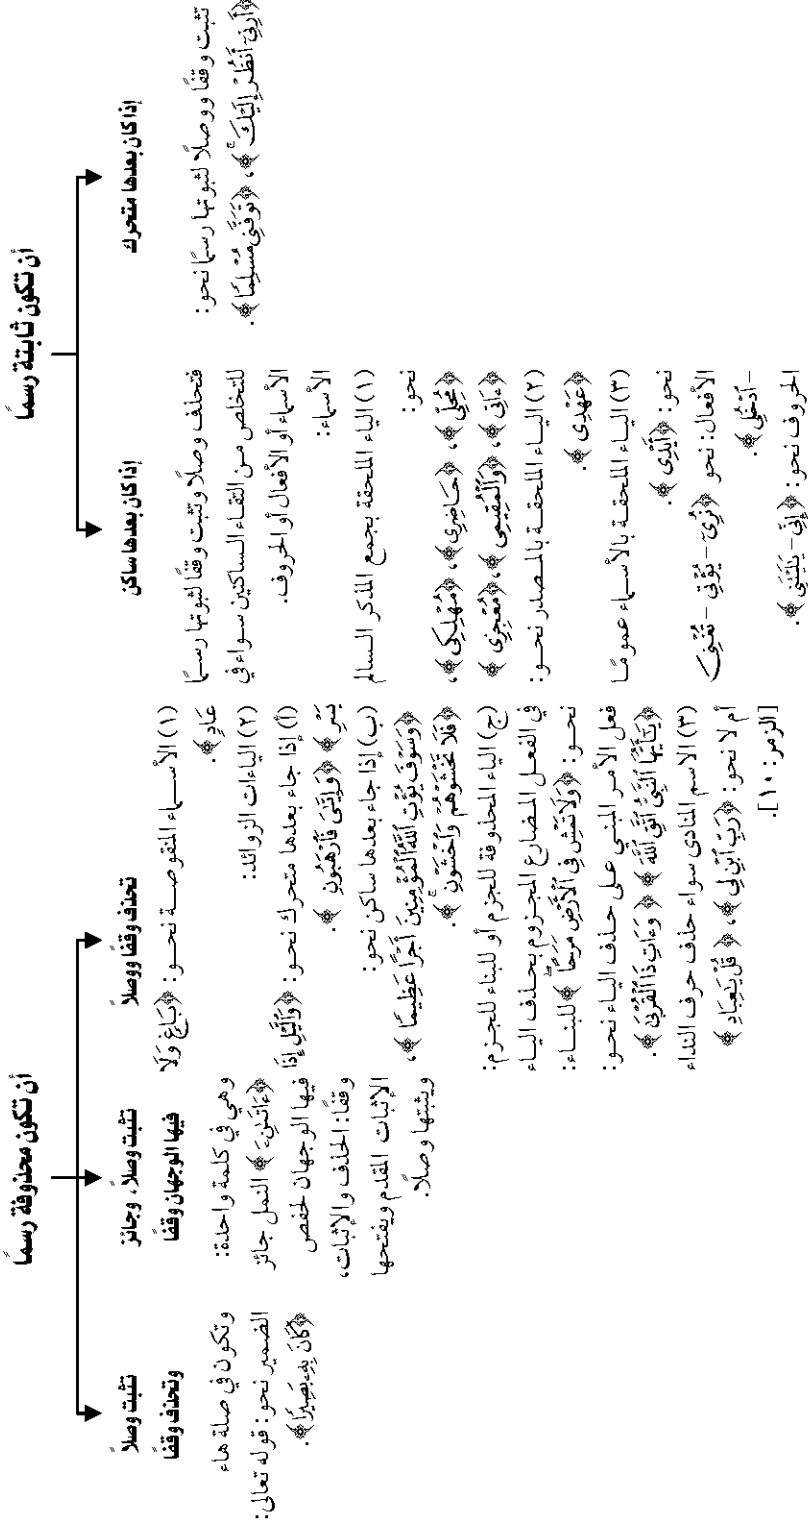 أن تكون ثابتة رسمًا
إذا كان بعدها متحرك
تثبت وقفًا ووصلًا لثبوتها رسمًا نحو:
﴿أَرِنِيٓ أَنظُرۡ إِلَيۡكَۚ﴾، ﴿تَوَفَّنِي مُسۡلِمٗا﴾.
إذا كان بعدها ساكن
فتحذف وصلًا وتثبت وقفًا لثبوتها رسمًا
للتخلص من التقاء الساكنين سواء في
الأسماء أو الأفعال أو الحروف.
الأسماء:
(١) الياء الملحقة بجمع المذكر السالم
نحو:
﴿مُحِلِّي﴾، ﴿حَاضِرِي﴾، ﴿مُهۡلِكِي﴾،
﴿ءَاتِي﴾، ﴿وَٱلۡمُقِيمِي﴾، ﴿مُعۡجِزِي﴾
(٢) الياء الملحقة بالمصدر نحو:
﴿عَهۡدِي﴾.
(٣) الياء الملحقة بالأسماء عمومًا
نحو: ﴿أَيۡدِي﴾.
الأفعال: نحو ﴿نُرِيٓ - يُؤۡتِي - تُغۡنِي
- ٱدۡخُلِي﴾.
الحروف نحو: ﴿إِنِّي - يَٰلَيۡتَنِي﴾.
أن تكون محذوفة رسمًا
تحذف وقفًا ووصلًا
(١) الأسماء المنقوصة نحو: ﴿بَاغٖ وَلَا
عَادٖ﴾.
(٢) الياءات الزوائد:
(أ) إذا جاء بعدها متحرك نحو: ﴿وَٱلَّيۡلِ إِذَا
يَسۡرِ﴾ ﴿وَإِيَّٰيَ فَٱرۡهَبُونِ﴾.
(ب) إذا جاء بعدها ساكن نحو:
﴿وَسَوۡفَ يُؤۡتِ ٱللَّهُ ٱلۡمُؤۡمِنِينَ أَجۡرًا عَظِيمٗا﴾،
﴿فَلَا تَخۡشَوۡهُمۡ وَٱخۡشَوۡنِۚ﴾.
(ج) الياء المحذوفة للجزم أو للبناء للجزم:
في الفعل المضارع المجزوم بحذف الياء
نحو: ﴿وَلَا تَمۡشِ فِي ٱلۡأَرۡضِ مَرَحًاۖ﴾ للبناء:
فعل الأمر المبني على حذف الياء نحو:
﴿يَٰٓأَيُّهَا ٱلنَّبِيُّ ٱتَّقِ ٱللَّهَ﴾ ﴿وَءَاتِ ذَا ٱلۡقُرۡبَىٰ﴾.
(٣) الاسم المنادى سواء حذف حرف النداء
أم لا نحو: ﴿رَبِّ ٱبۡنِ لِي﴾، ﴿قُلۡ يَٰعِبَادِ﴾
[الزمر: ١٠].
تثبت وصلًا، وجائز
فيها الوجهان وقفًا
وهي في كلمة واحدة:
﴿ءَاتَىٰنِۦَ﴾ النمل جائز
فيها الوجهان لحفص
وقفًا: الحذف والإثبات،
الإثبات المقدم ويفتحها
ويثبتها وصلًا.
تثبت وصلًا
وتحذف وقفًا
وتكون في صلة هاء
الضمير نحو: قوله تعالى:
﴿كَانَ بِهِۦ بَصِيرٗا﴾.